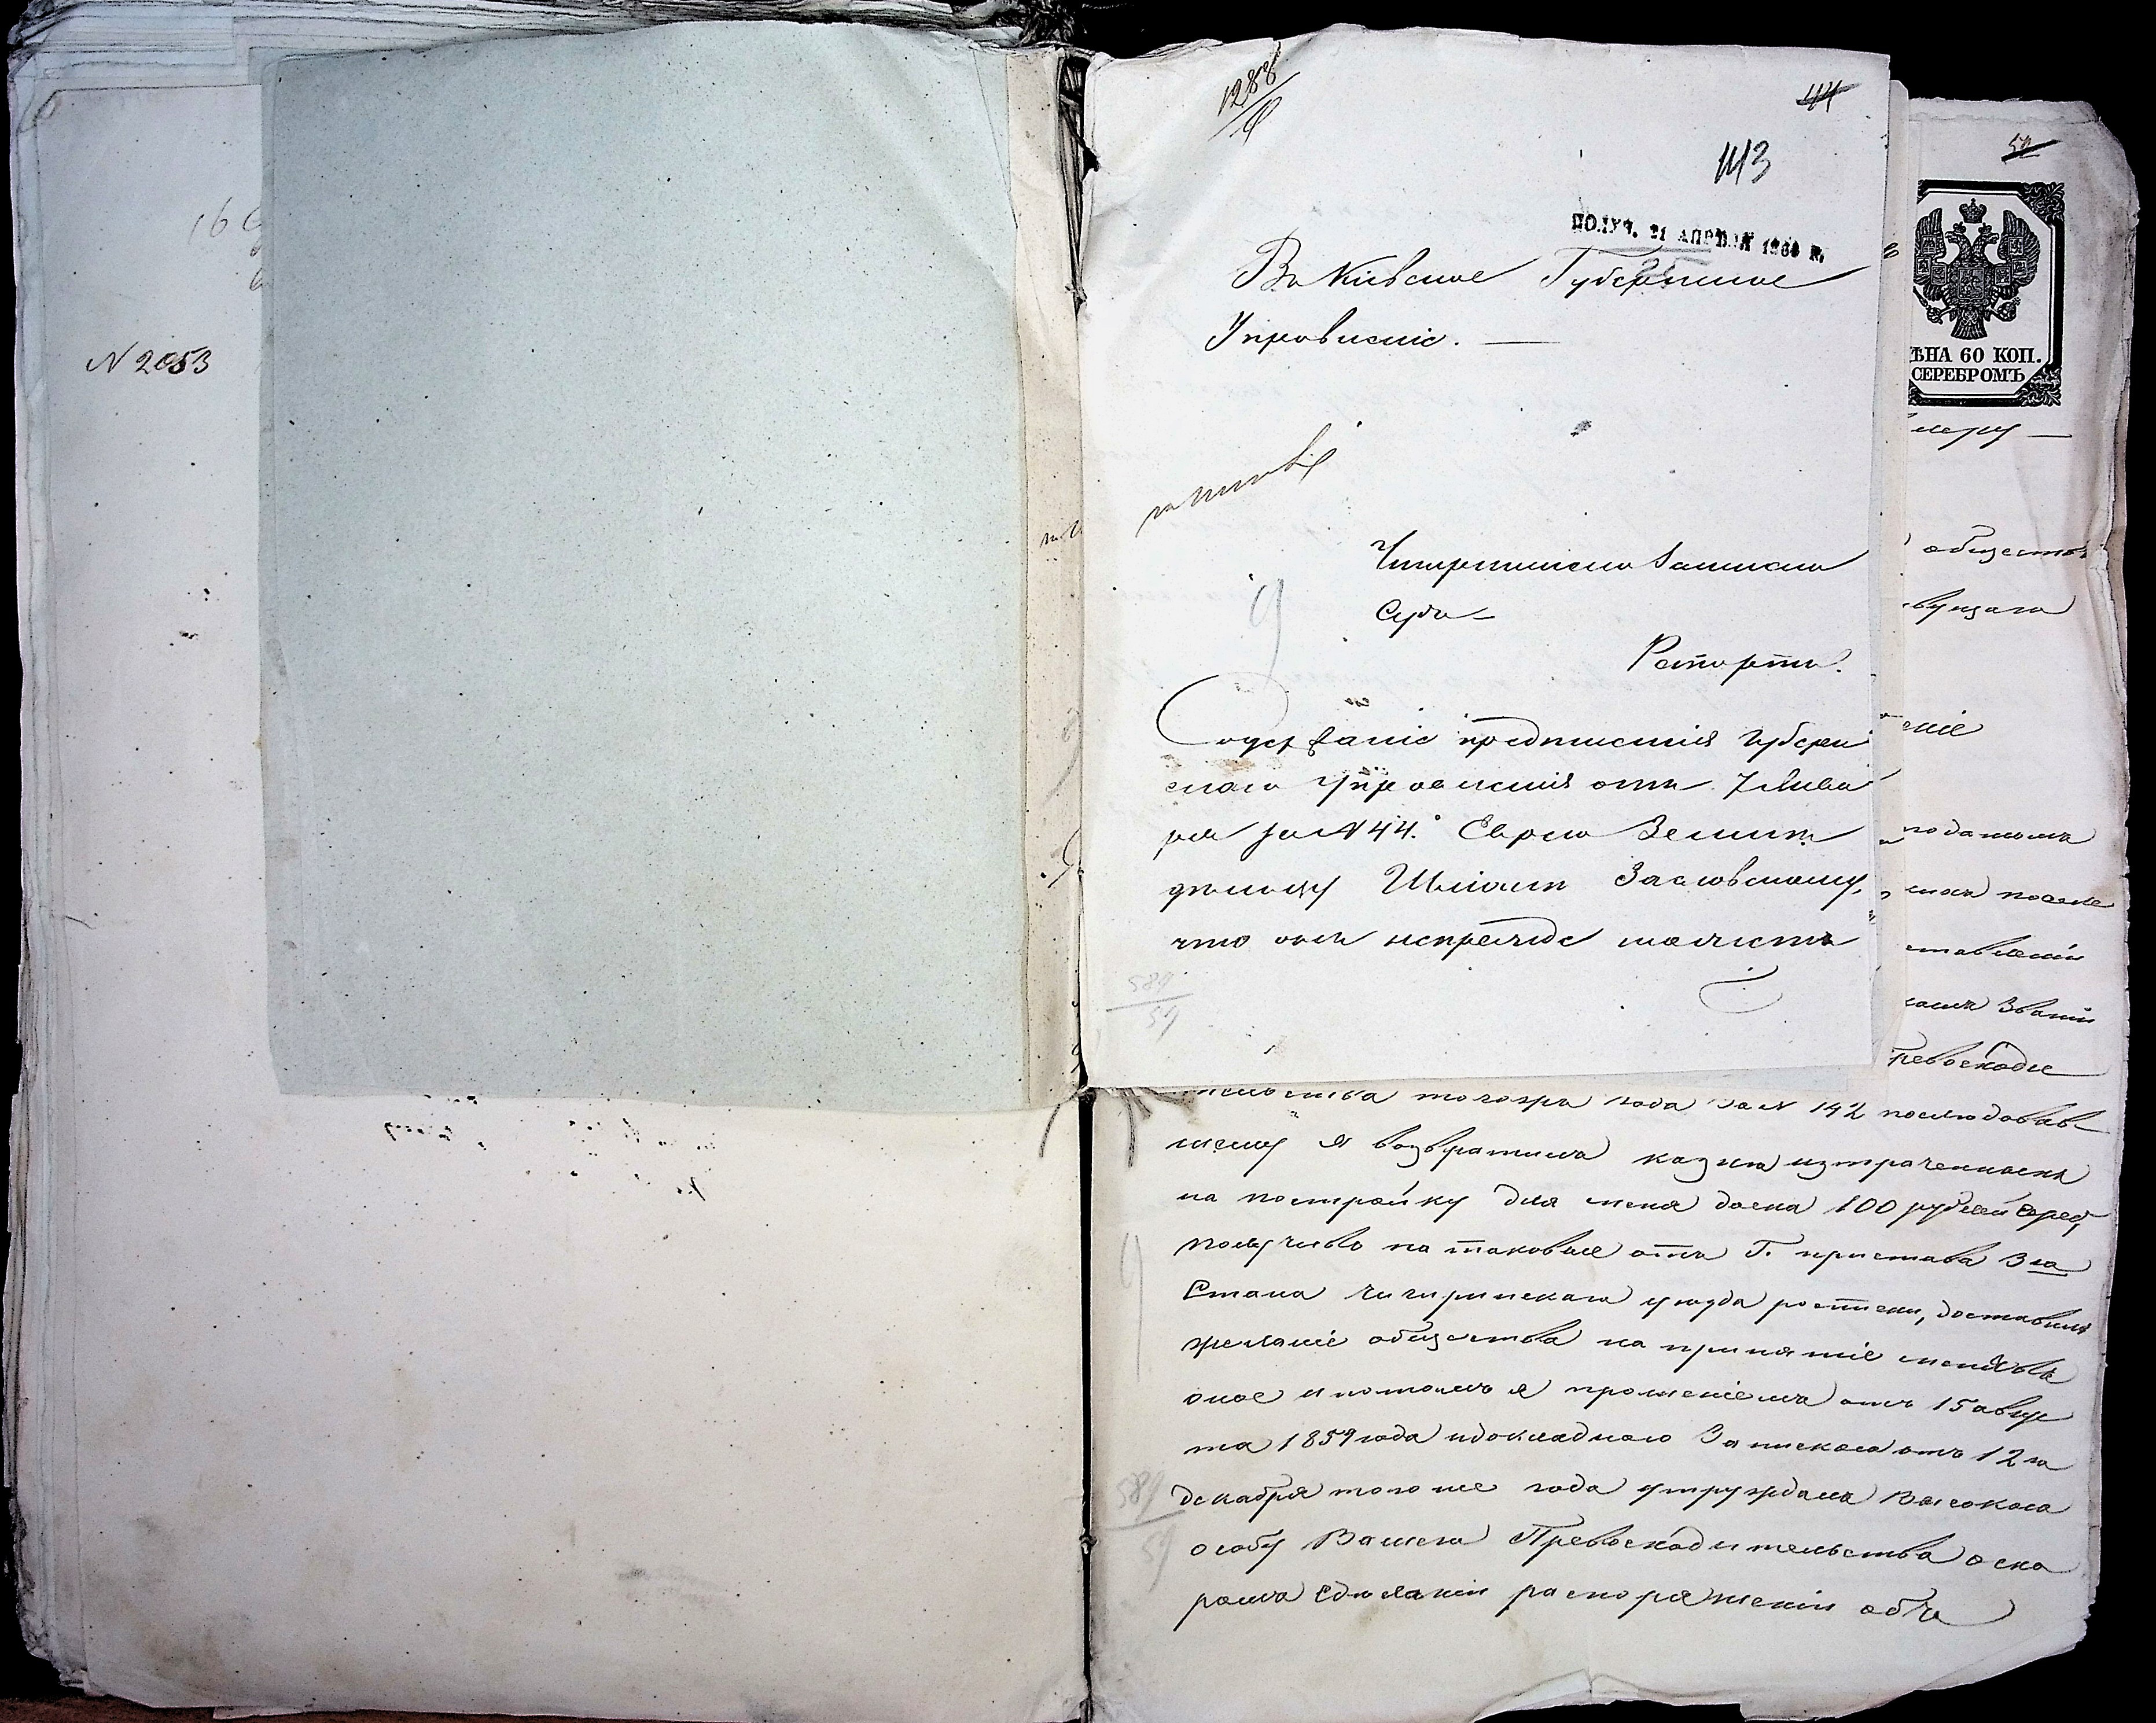 16
N 2053
1288
44
143
ПОЛУЧ. 21 АПРѢЛЯ 1860 г.
Въ Кіевское Губернское
Управленіе.
Чигиринскаго Земскаго
Суда
Рапортъ.
Содержаніе предписанія Губерн
скаго Управленія отъ 7 Янва
ря за N 44. Еврею Земле
дѣльцу Шліомѣ Заславскому,
что онъ не прежде можетъ
589
59
52
ѢНА 60 КОП.
СЕРЕБРОМЪ
неру
обществ
вующаго
ніе
податномъ
после
ставленіи
Званіи
Превосходи
тельства тогожъ года за N 142 последовав
шему я возвратилъ казнѣ изтраченныхъ
на постройку для меня дома 100 рублей сереб,
получивъ на таковые отъ Г. пристава 3 го
Стана Чигиринскаго уѣзда росписки, доставилъ
желаніе общества на принятіе меня въ
оное и потомъ я прошеніемъ отъ 15 авгус
та 1859 года и докладною Запискою отъ 12 го
декабря того же года утруждалъ Высокою
особу Вашего Превосходительства о ско
ромъ Сдѣланіи распоряженіи обѣ
589
59